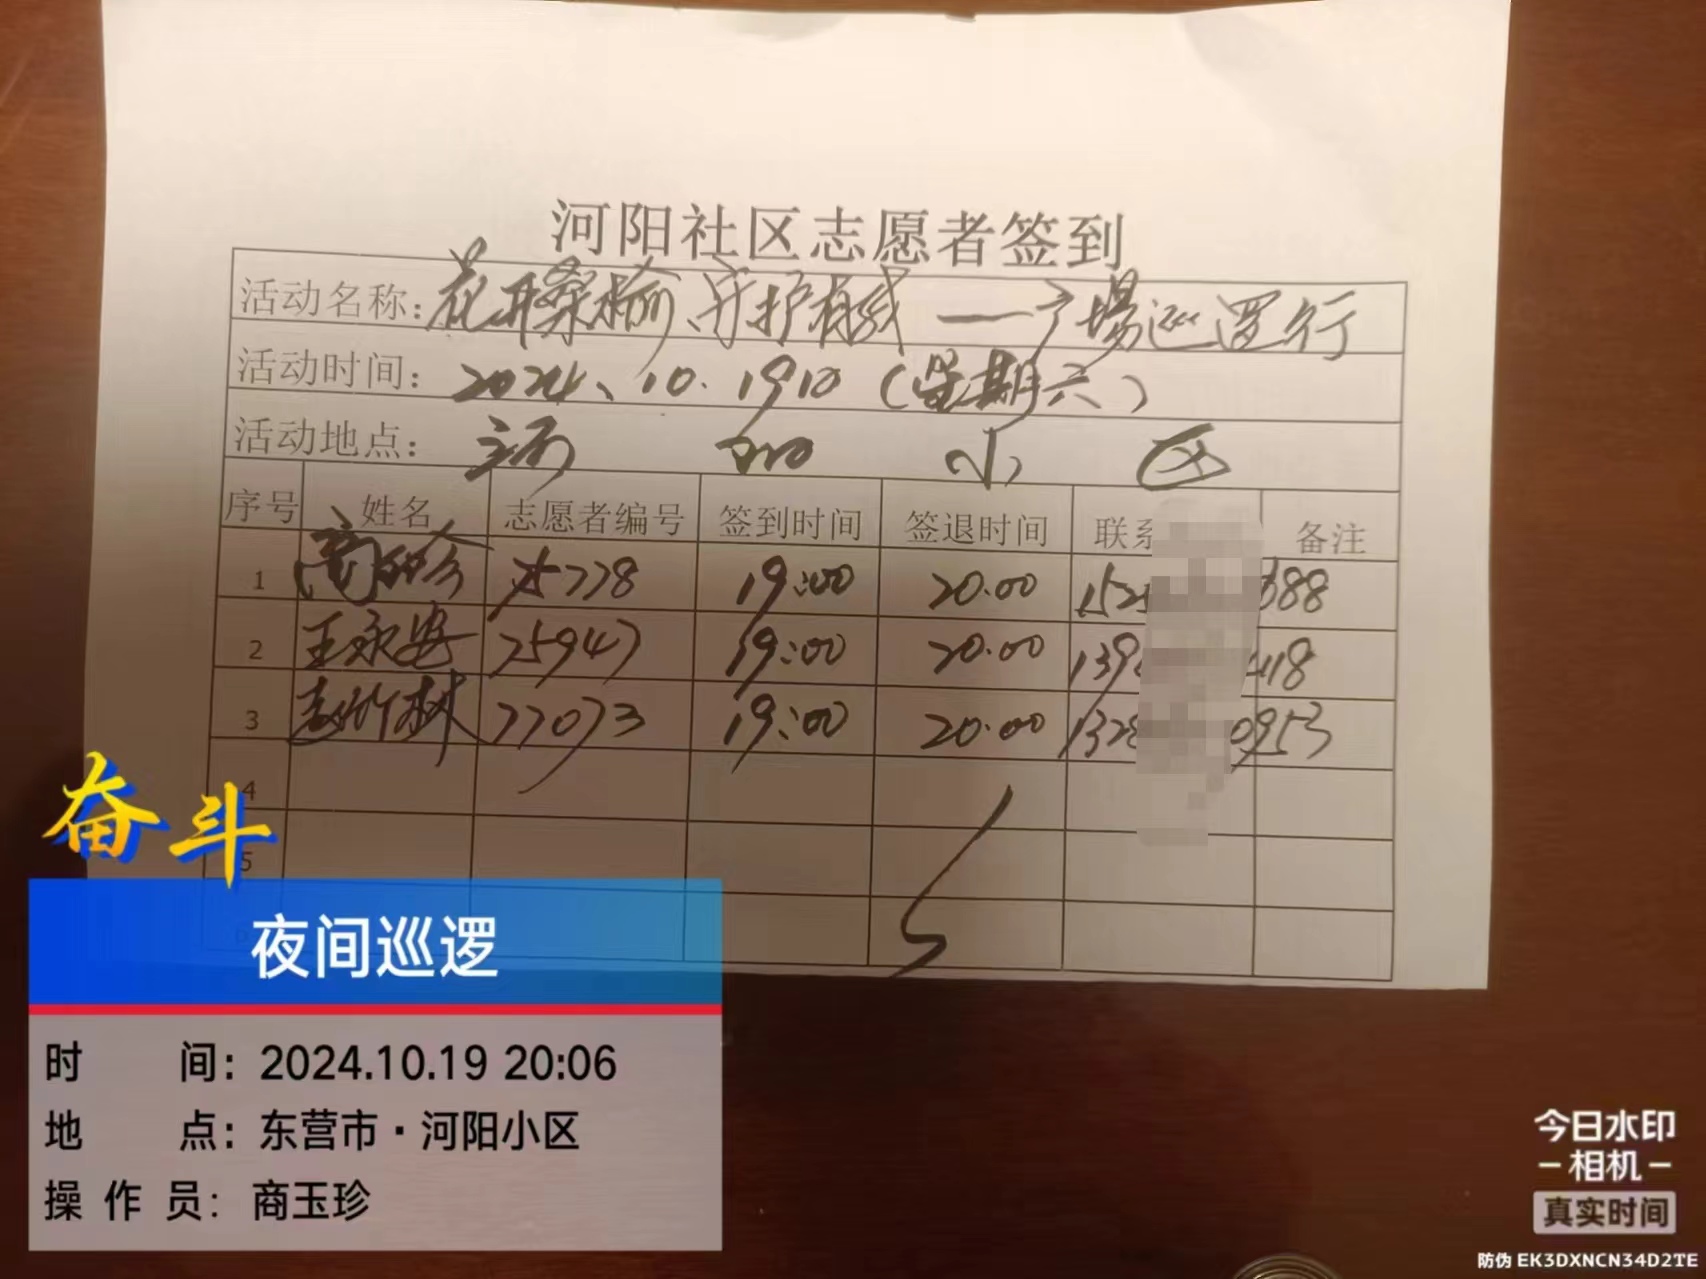 河阳社区志愿者签到
活动名称：花开桑榆、守护有我 一广場巡逻行
活动时间：2024、10.19日（星期六）
活动地点：河阳小区
序号 姓名 志愿者编号 签到时间 签退时间 联系 备注
1 商玉珍 25778 19:00 20.00 152 688
2 王永安 25947 19:00 20.00 139 418
3 赵竹林 77073 19:00 20.00 1328 0953
4
5
奋斗
夜间巡逻
时间：2024.10.19 20:06
地点：东营市·河阳小区
操作员：商玉珍
今日水印
-相机-
真实时间
防伪 EK3DXNCN34D2TE